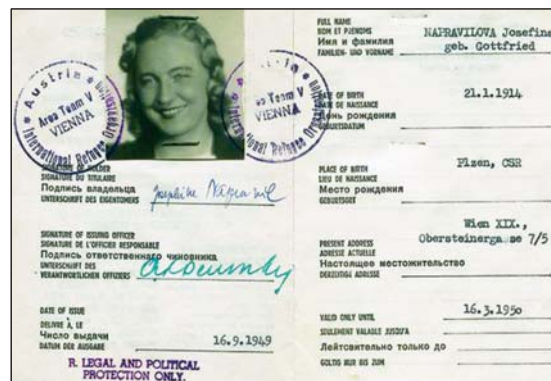 Austria
Area Team V
VIENNA
International Refugee Organization
SIGNATURE OF HOLDER
SIGNATURE DU TITULAIRE
Подпись владельца
UNTERSCHRIFT DES EIGENTOMERS
SIGNATURE OF ISSUING OFFICER
SIGNATURE DE L'OFFICIER RESPONSABLE
Подпись ответственного чиновника
UNTERSCHRIFT DES
VERANTWORTLICHEN OFFIZIERS
DATE OF ISSUE
DELIVRE A, LE
Число выдачи
DATUM DER AUSGABE
16.9.1949
R. LEGAL AND POLITICAL
PROTECTION ONLY.
FULL NAME
NOM ET PRENOMS
Имя и фамилия
FAMILIEN- UND VORNAME
NAPRAVILOVA Josefina
geb. Gottfried
DATE OF BIRTH
DATE DE NAISSANCE
День рождения
GEBURTSDATUM
21.1.1914
PLACE OF BIRTH
LIEU DE NAISSANCE
Место рождения
Plzen, CSR
PRESENT ADDRESS
ADRESSE ACTUELLE
Настоящее местожительство
DERZEITIGE ADRESSE
Wien XIX.,
Obersteinerga se 7/5
VALID ONLY UNTIL
SEULEMENT VALABLE JUSQU'A
Лейтсвительно только до
GOLTIG NUR BIS ZUM
16.3.1950